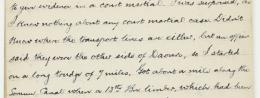 to give evidence in a court martial. I was surprised, as
I knew nothing about any court martial case. Didn't
know where the transport lines are either, but an officer
said they were the other side of Daours, so I started
on a long trudge of 7 miles. Got about a mile along the
Somme Canal when a 13th Bn limber, which had been